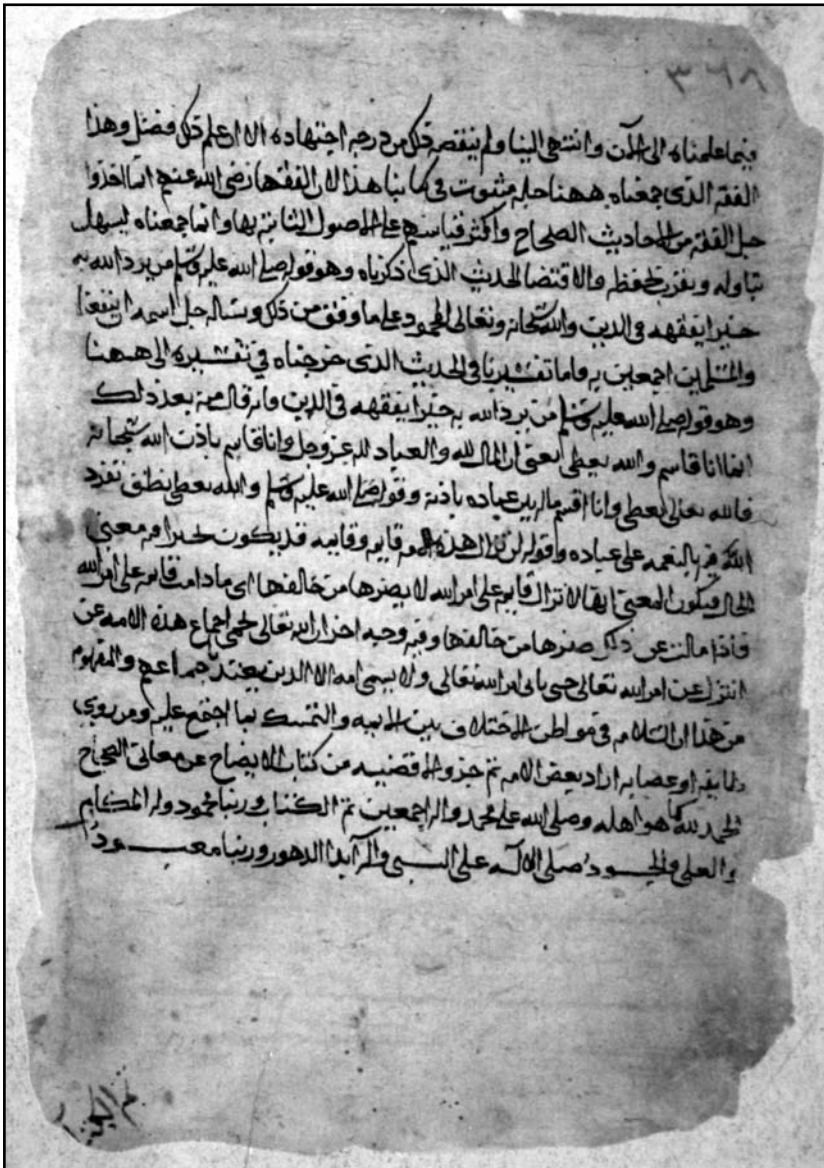 ٣٦٨
فيما علمناه الى الآن وانتهى الينا ولم ينقصه ذلك من درجة اجتهاده الا ان علم ذلك فضل وهذا
الفقه الذى جمعناه ههنا جله مثبوت فى كتابنا هذا لان الفقهاء رضى الله عنهم انما اخذوا
جل الفقه من الاحاديث الصحاح واكثر قياسهم على الاصول الثابتة بها وانما جمعناه ليسهل
تناوله ويقرب حفظه ولاقتضا الحديث الذى ذكرناه وهو قوله صلى الله عليه وسلم من يرد الله به
خيرا يفقهه فى الدين والله سبحانه وتعالى المحمود على ما وفق من ذلك ونسأله جل اسمه ان ينفعنا
والمسلمين اجمعين به فاما تفسيرنا فى الحديث الذى خرجناه فى تفسيره الى ههنا
وهو قوله صلى الله عليه وسلم من يرد الله به خيرا يفقهه فى الدين فانه قال فيه بعد ذلك
انما انا قاسم والله يعطى يعنى ان المال لله والعباد لله عز وجل وانا قاسم باذن الله سبحانه
فالله تعالى يعطى وانا اقسم ماله بين عباده باذنه وقوله صلى الله عليه وسلم والله يعطى ينطق تفرد
الله بالنعمه على عباده وقوله لن تزال هذه الامه قايمه وقايمه قد يكون خبرا فيه معنى
الحال فيكون المعنى انها لا تزال قايمه على امر الله لا يضرها من خالفها اى ما دامت قايمه على امر الله
فاذا مالت عن ذلك ضرها من خالفها وفيه وجه اخر ان الله تعالى يحمى اجماع هذه الامه عن
ان تزل عن امر الله تعالى حتى ياتى امر الله تعالى ولا يسمى امه الا الذين يعتد باجماعهم والمفهوم
من هذا ان السلامه فى مواطن الاختلاف بين الايمه والتمسك بما اجتمع عليه ومن روى
طايفه او عصابه اراد بعض الامه تم جزو الاقضيه من كتاب الايضاح عن معانى الصحاح
الحمد لله كما هو اهله وصلى الله على محمد واله اجمعين تم الكتاب وربنا محمود وله المكارم
والعلى والجود صلى الاله على النبى وآله ابدا الدهور وربنا معبود